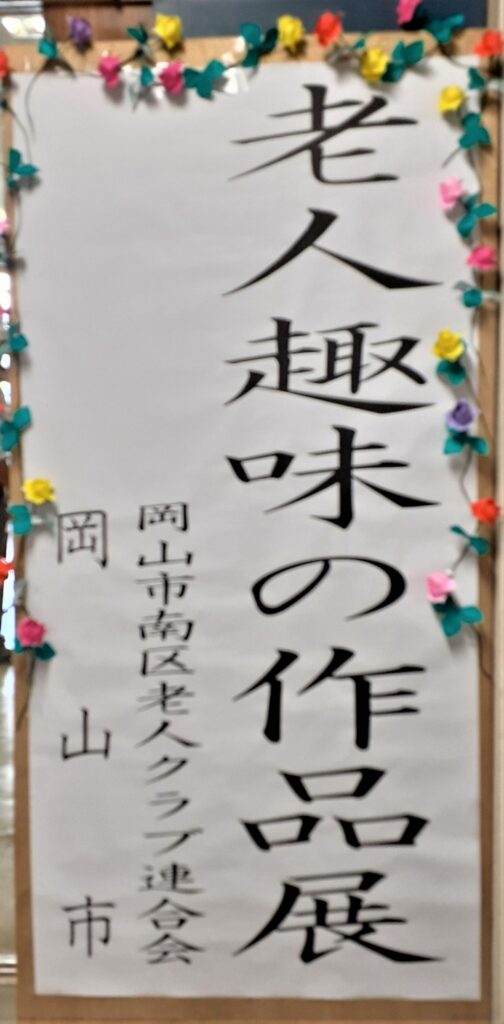 老人趣味の作品展
岡山市南区老人クラブ連合会
岡山市